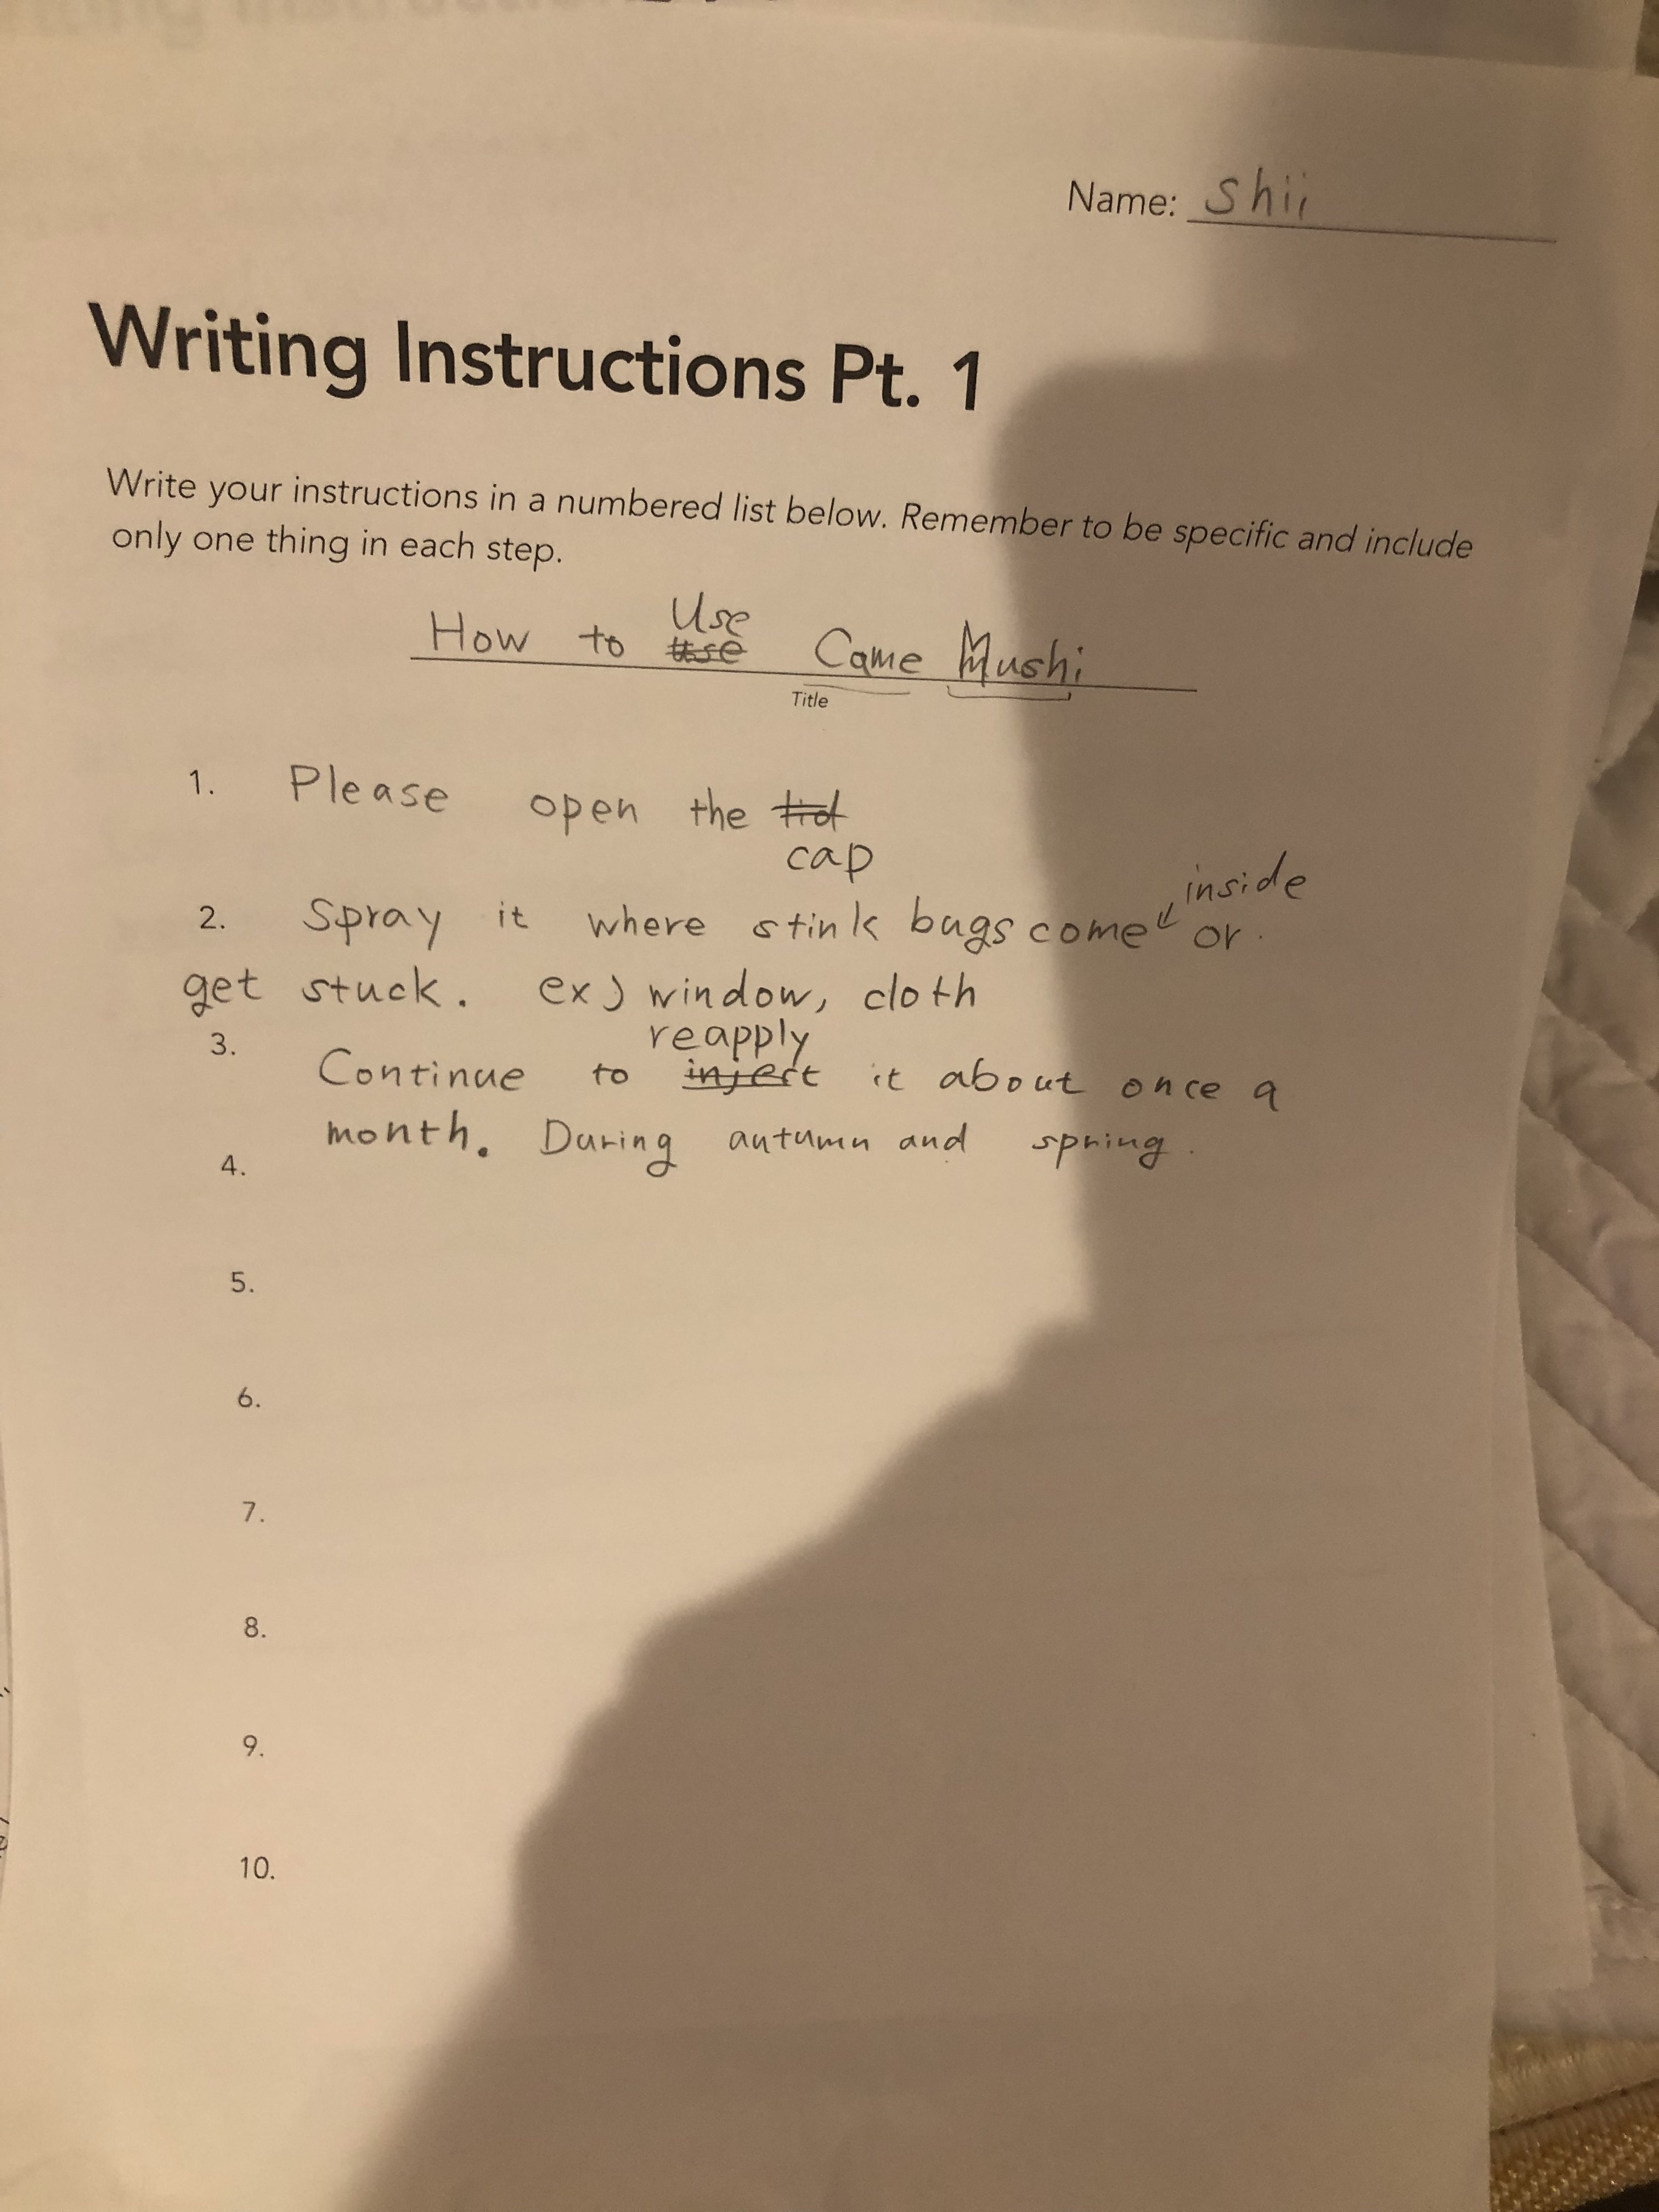 Name: Shii
Writing Instructions Pt. 1
Write your instructions in a numbered list below. Remember to be specific and include
only one thing in each step.
Use
How to use Came Mushi
Title
1. Please open the
cap
inside
2. Spray it where stink bugs come or
get stuck. ex) window, cloth
reapply
3. Continue to injert it about once a
month. During autumn and spring.
4.
5.
6.
7.
8.
9.
10.